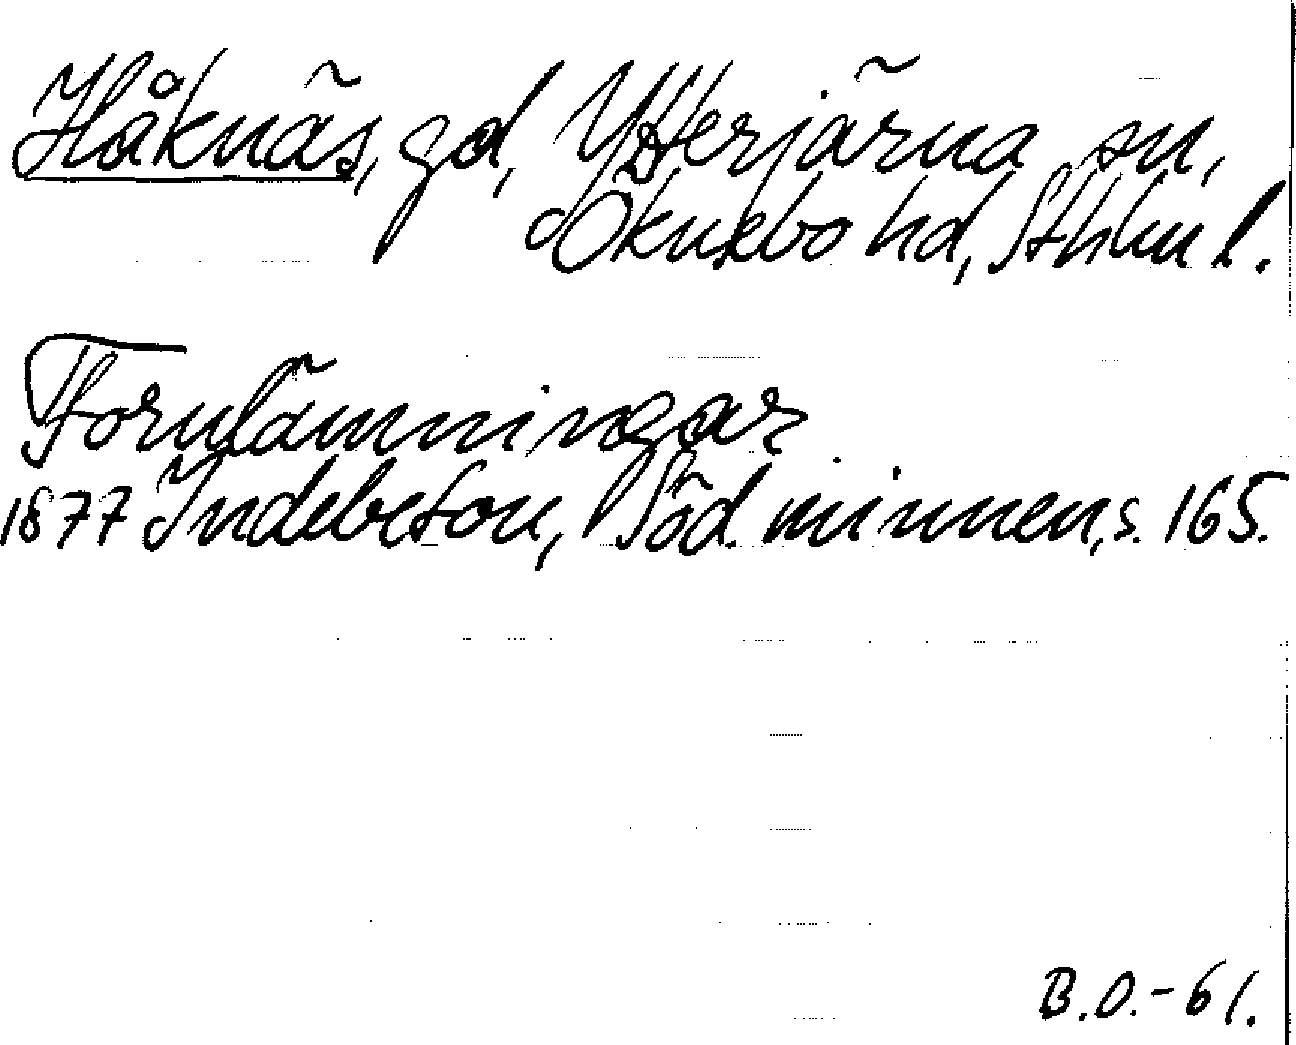 Håknäs, gd, Ytterjärna sn,
Öknebo hd, Sthlm l.
Fornlämningar
1877 Indebetou, Söd. minnen, s. 165.
B.O.-61.